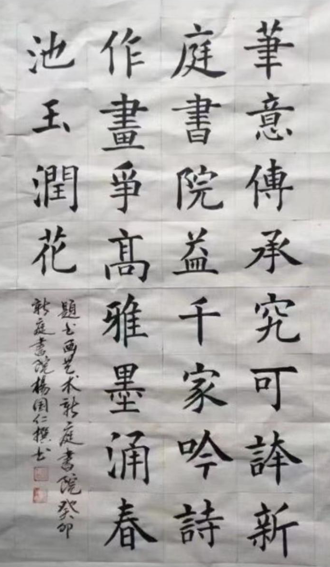 筆意傳承究可誇新
庭書院益千家吟詩
作畫爭高雅墨涌春
池玉潤花
題书画艺术新庭書院癸卯
新庭書院楊国仁撰书